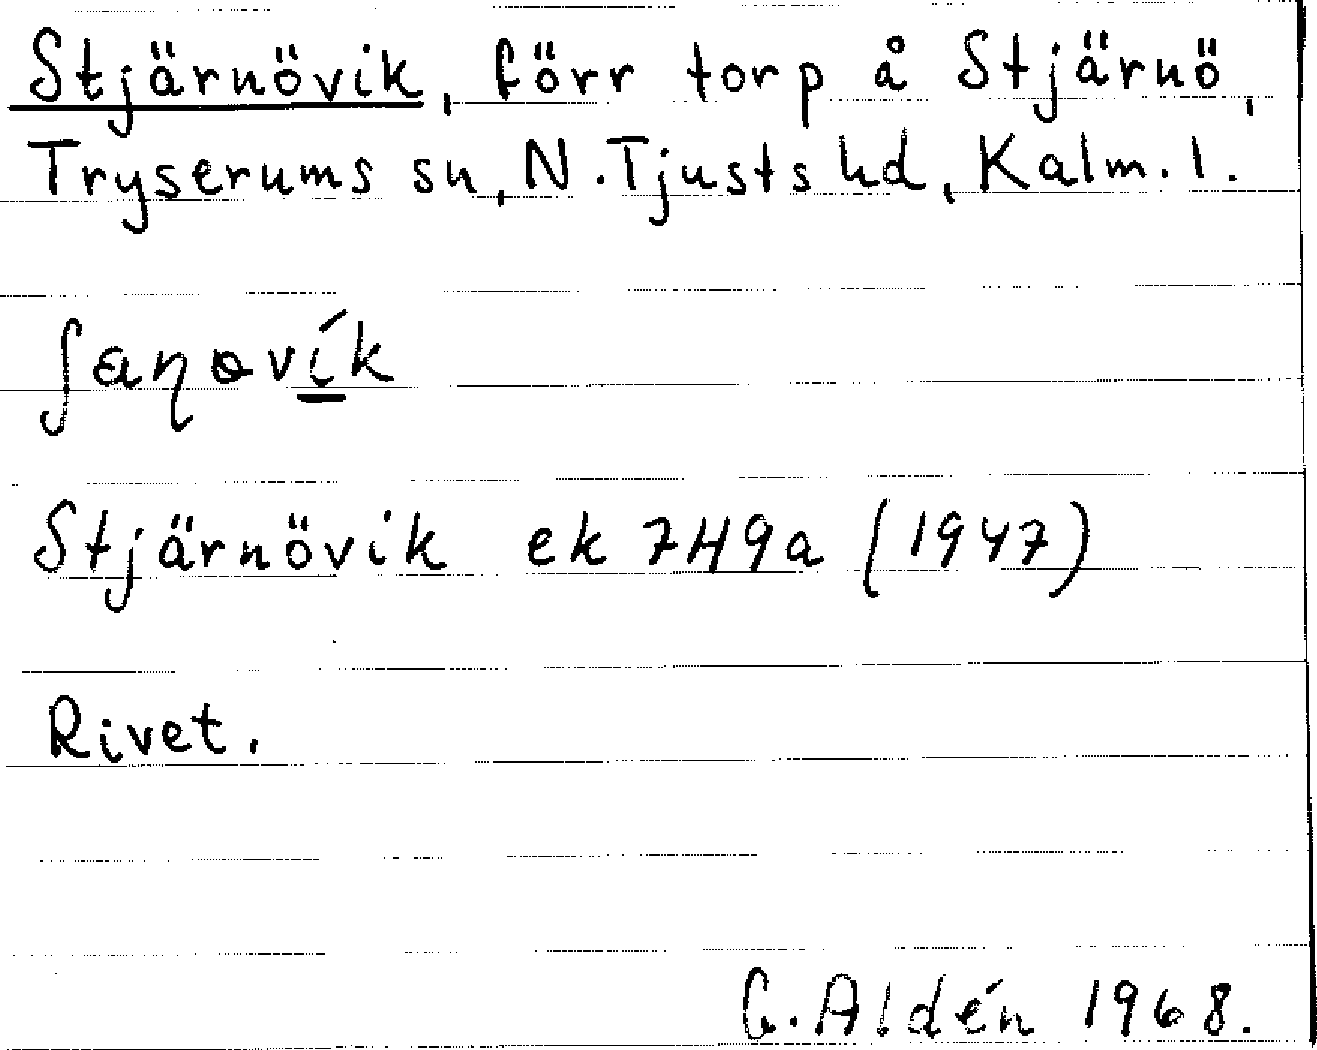 Stjärnövik, förr torp å Stjärnö,
Tryserums sn, N. Tjusts hd, Kalm. l.
ʃaɳɵvík
Stjärnövik ek 7H9a (1947)
Rivet.
G. Aldén 1968.